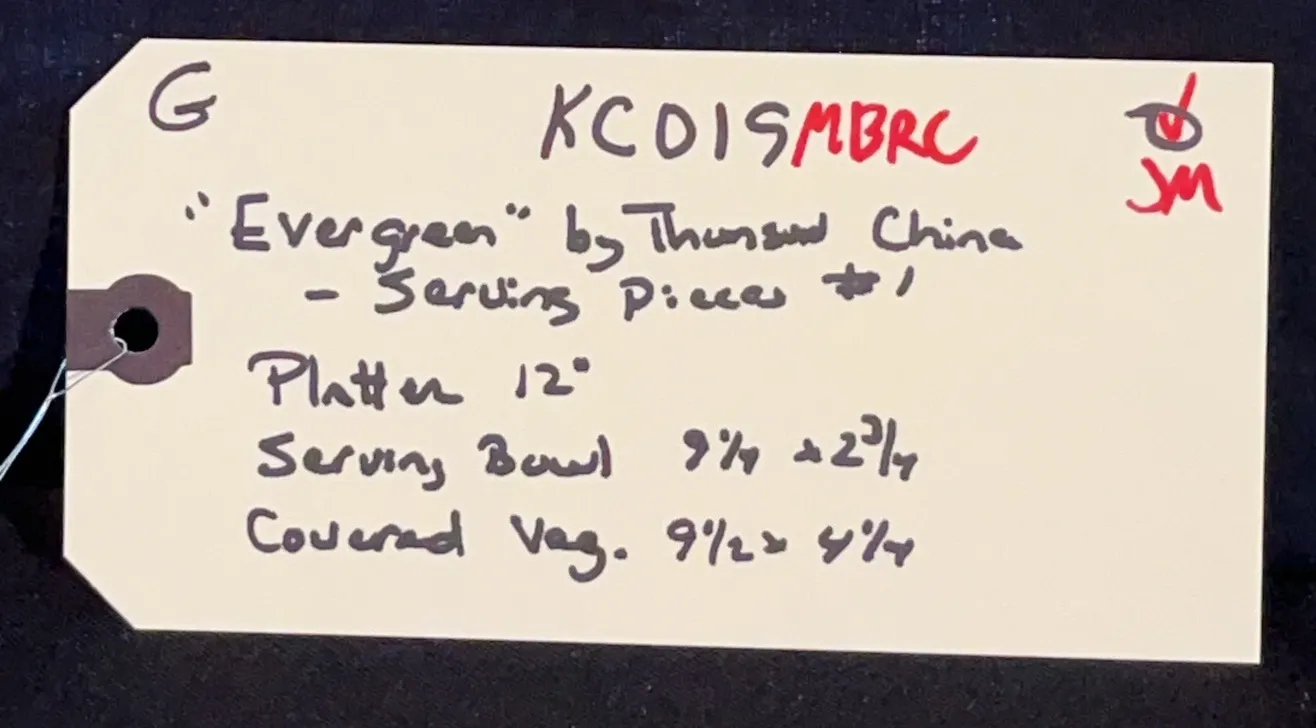 G KC019MBRC
JM
"Evergreen" by Thunsund China
- Serving Pieces #1
Platter 12"
Serving Bowl 9 1/4 x 2 3/4
Covered Veg. 9 1/2 x 4 1/4